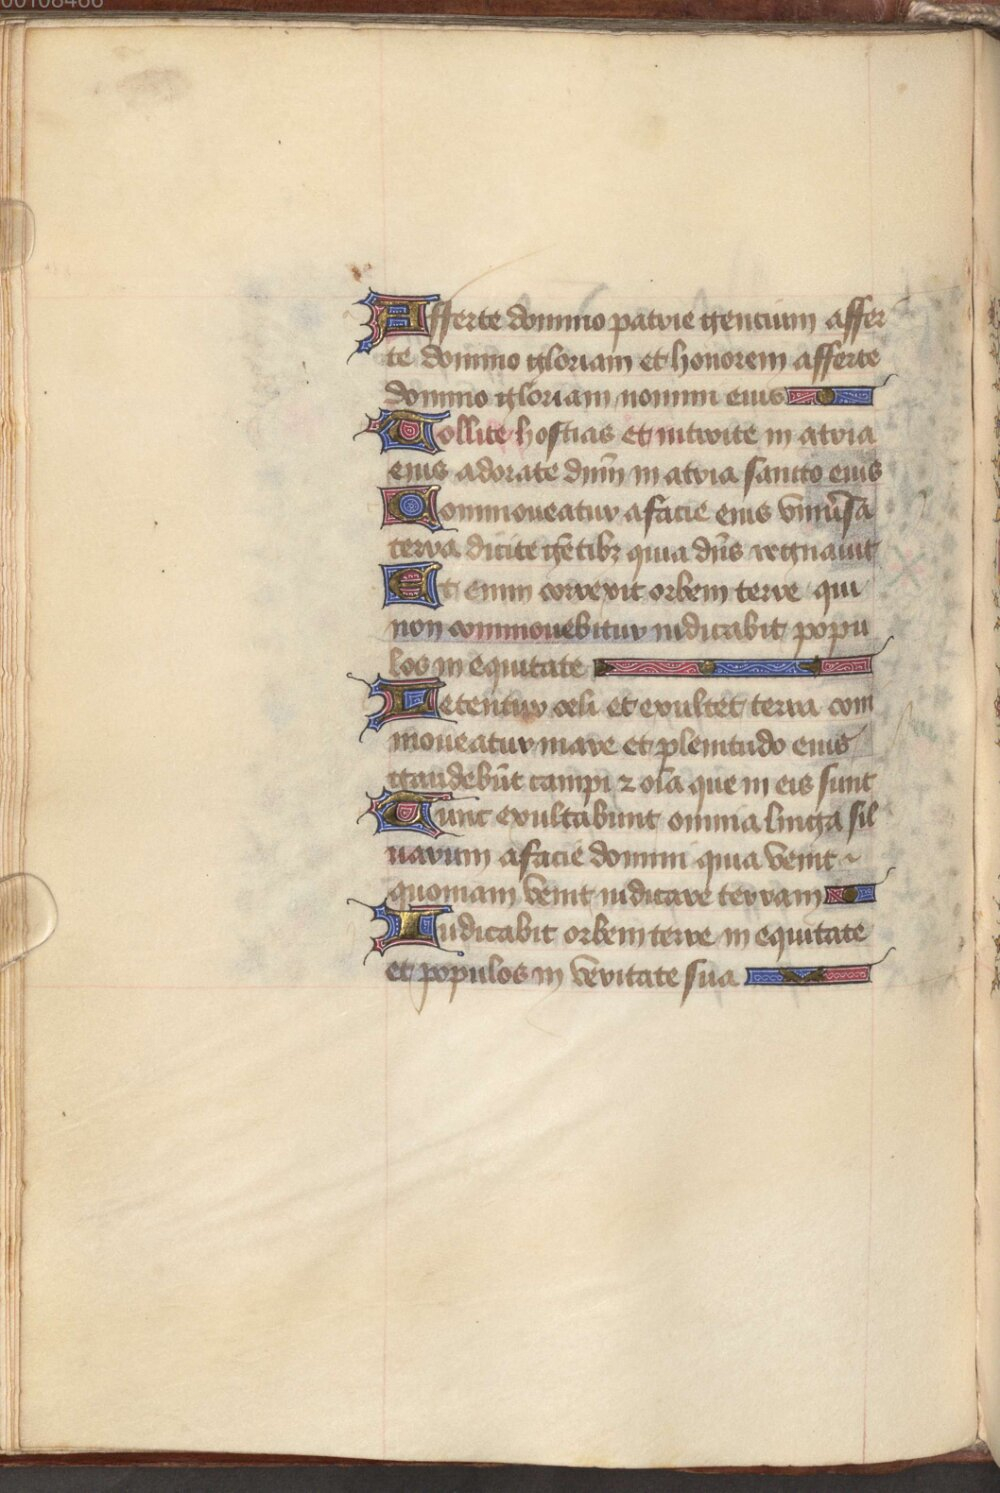 00108466
Afferte domino patrie gentium affer
te domino gloriam et honorem afferte
domino gloriam nomini eius
Tollite hostias et introite in atria
eius adorate dnm̄ in atria sancto eius
Commoueatur a facie eius vniuŝa
terra dicite gētibꝫ quia dn̄s regnauit
Et enim correxit orbem terre qui
non commouebitur iudicabit popu
los in equitate
Letentur celi et exultet terra com
moueatur mare et plenitudo eius
gaudebūt campi ⁊ oīa que in eis sunt
Tunc exultabunt omnia lingna sil
uarum a facie domini quia venit
quoniam venit iudicare terram
Iudicabit orbem terre in equitate
et populos in veritate sua